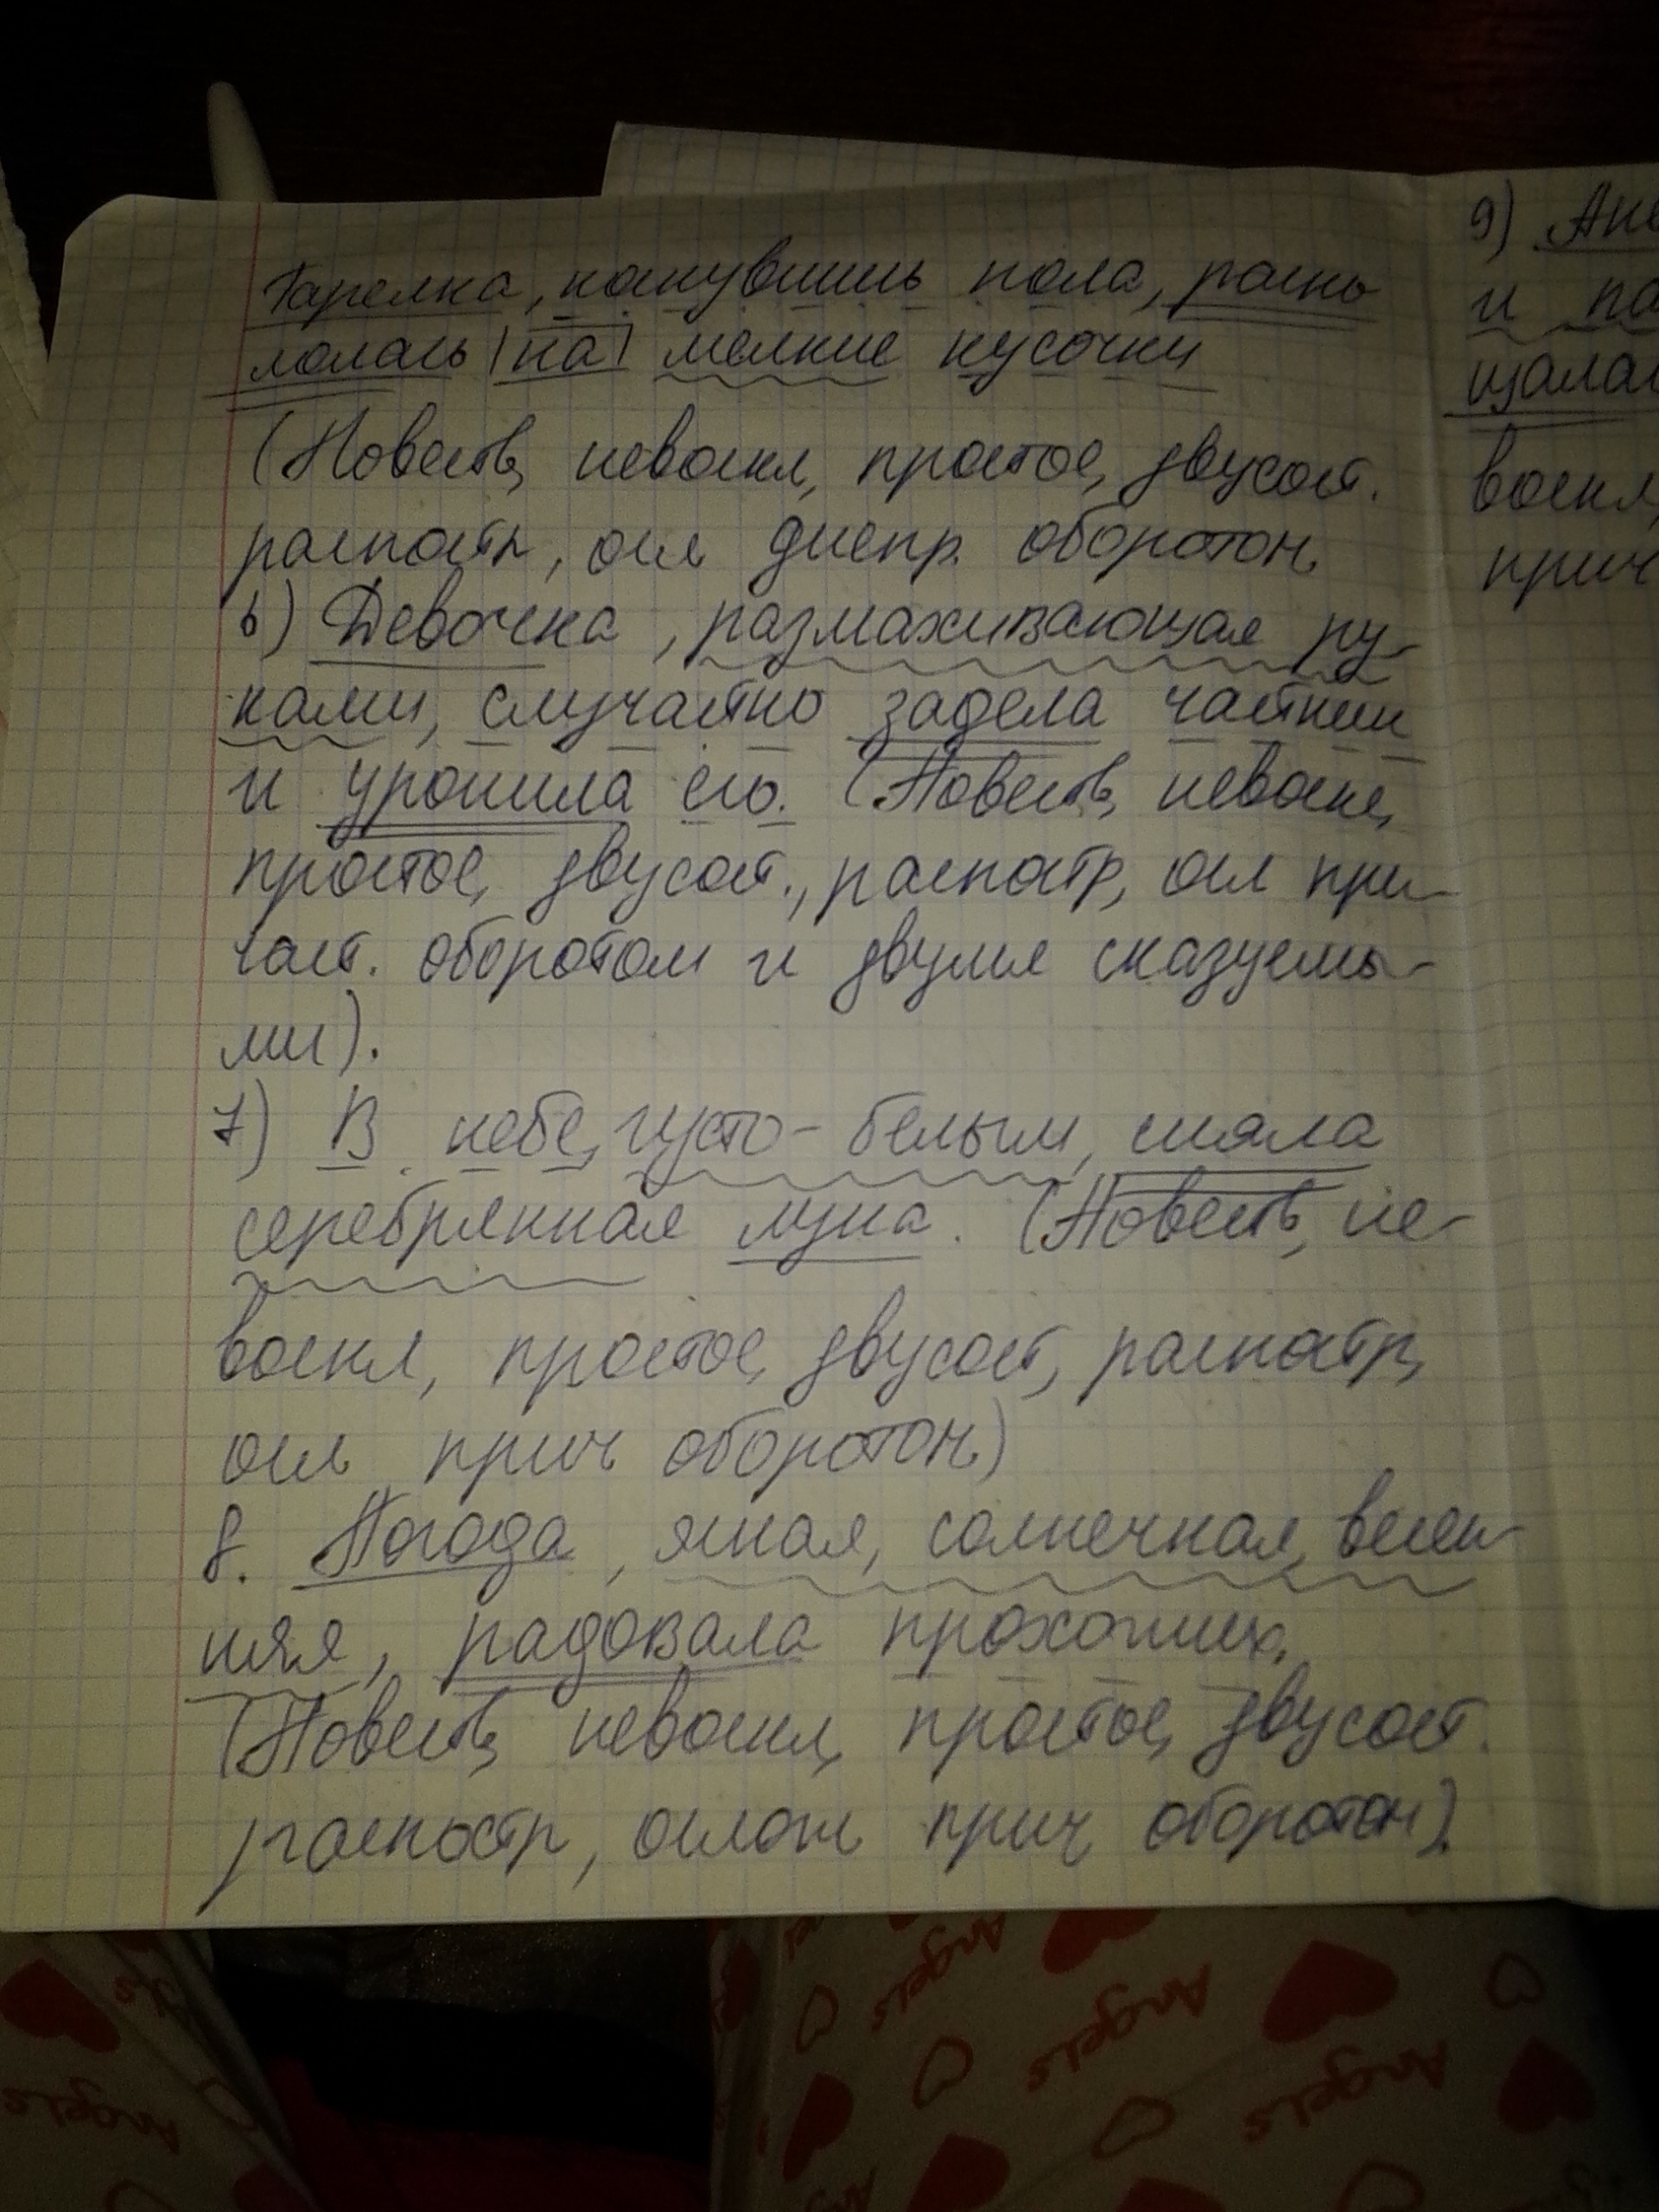 Тарелка, коснувшись пола, раско
лолась на мелкие кусочки
(Повеств, невоскл, простое, двусост.
распостр, осл деепр. оборотом
6) Девочка, размахивающая ру-
ками, случайно задела чайник
и уронила его. (Повеств, невоскл,
простое, двусост., распостр, осл при-
част. оборотом и двумя сказуемы-
ми).
7) В небе, густо-белым, сияла
серебрянная луна. (Повеств, не-
воскл, простое, двусост, распостр,
осл прич оборотом)
8. Погода, ясная, солнечная, весен-
няя, радовала прохожих.
(Повеств, невоскл, простое, двусост.
распостр, ослож прич оборотом).
9)
и
воскл,
прич
Angels
Angels
Angels
Angels
Angels